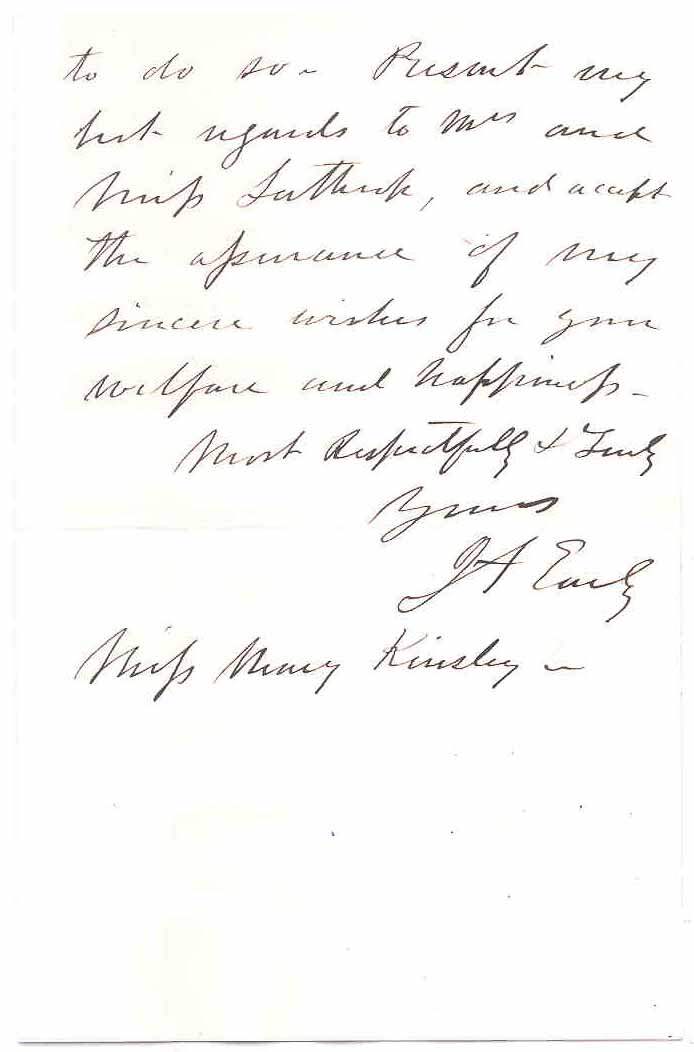 to do so - Present my
best regards to Mrs and
Miss Lathrop, and accept
the assurance of my
sincere wishes for your
welfare and happiness -
Most Respectfully & Truly
Yours
J A Early
Miss Mary Kinsley -